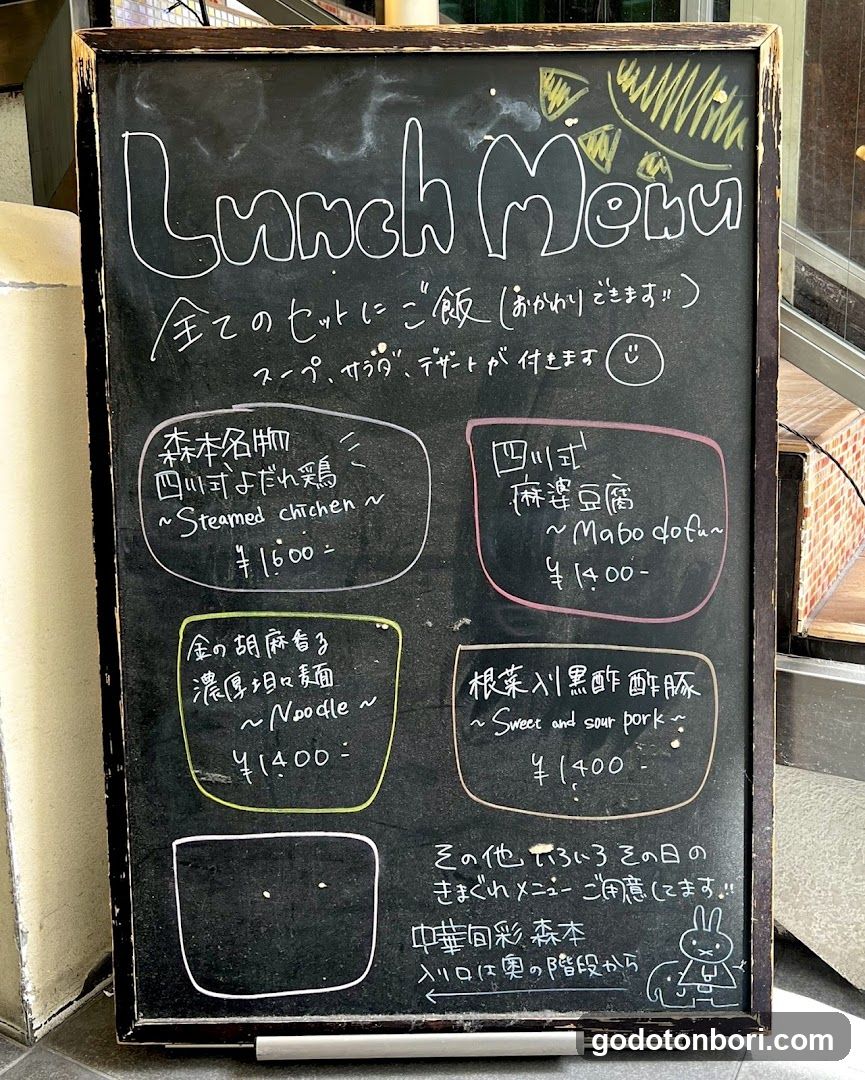 Lunch Menu
全てのセットにご飯(おかわりできます!!)
スープ、サラダ、デザートが付きます
森本名物
四川式よだれ鶏
~Steamed chicken~
¥1600-
四川式
麻婆豆腐
~Mabo dofu~
¥1400-
金の胡麻香る
濃厚坦々麺
~Noodle~
¥1400-
根菜入り黒酢酢豚
~Sweet and sour pork~
¥1400-
その他いろいろその日の
きまぐれメニューご用意してます!!
中華旬彩 森本
入り口は奥の階段から
godotonbori.com